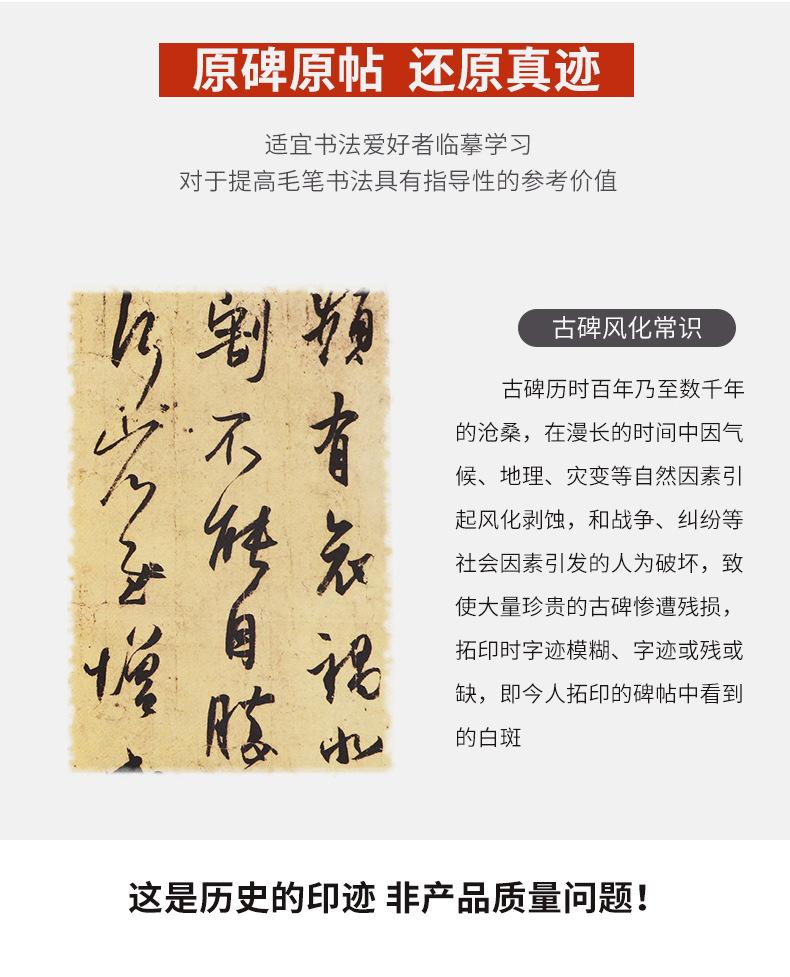 原碑原帖 还原真迹
适宜书法爱好者临摹学习
对于提高毛笔书法具有指导性的参考价值
頻有哀禍悲
割不能自勝
何省慰增
古碑风化常识
古碑历时百年乃至数千年
的沧桑，在漫长的时间中因气
候、地理、灾变等自然因素引
起风化剥蚀，和战争、纠纷等
社会因素引发的人为破坏，致
使大量珍贵的古碑惨遭残损，
拓印时字迹模糊、字迹或残或
缺，即今人拓印的碑帖中看到
的白斑
这是历史的印迹 非产品质量问题！